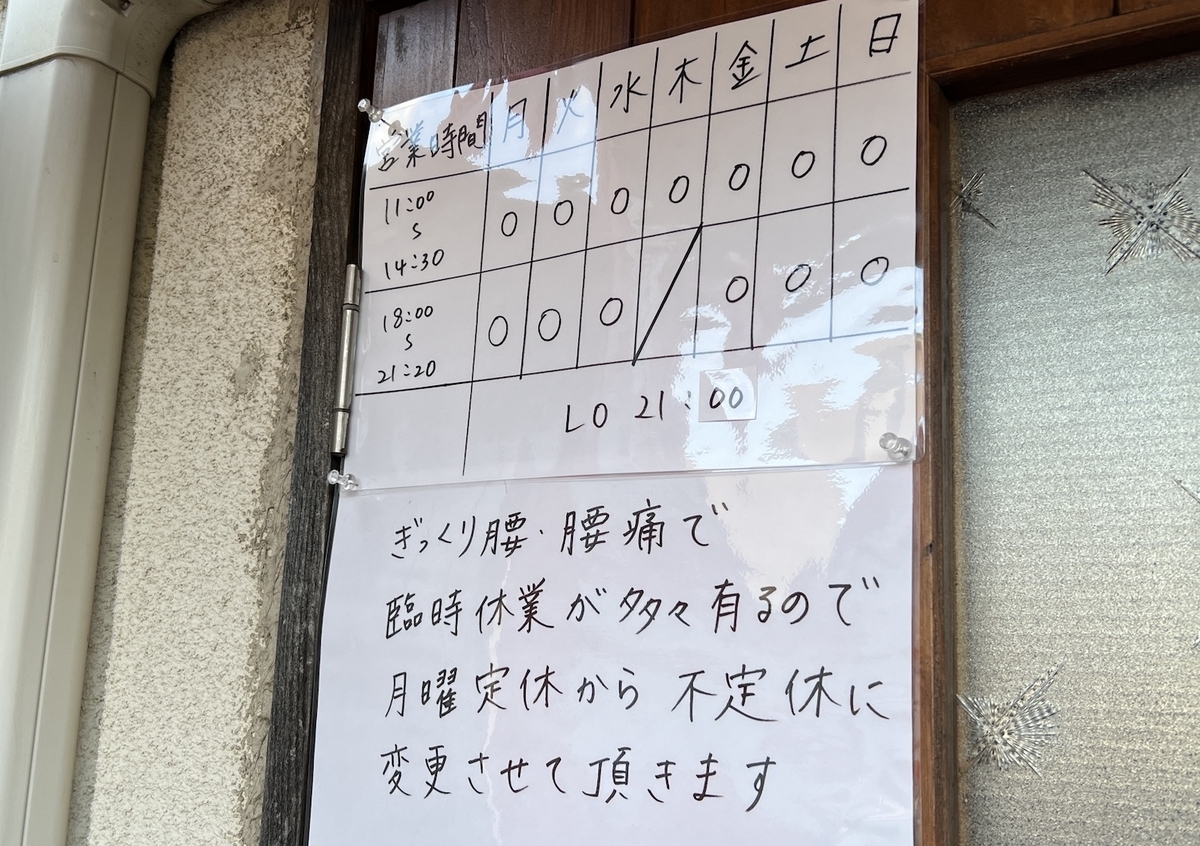 営業時間 月 火 水 木 金 土 日
11:00
〜
14:30
○ ○ ○ ○ ○ ○ ○
18:00
〜
21:20
○ ○ ○ / ○ ○ ○
LO 21:00
ぎっくり腰・腰痛で
臨時休業が多々有るので
月曜定休から不定休に
変更させて頂きます